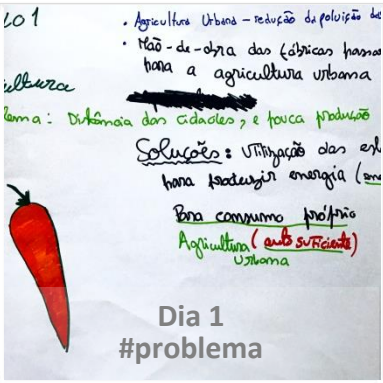 LO 1
• Agricultura Urbana – redução da poluição das
• Mão-de-obra das fábricas passa
para a agricultura urbana
cultura
lema: Distância das cidades, e pouca produção
Soluções: Utilização das
para produzir energia (
Para consumo próprio
Agricultura (auto suficiente)
Urbana
Dia 1
#problema